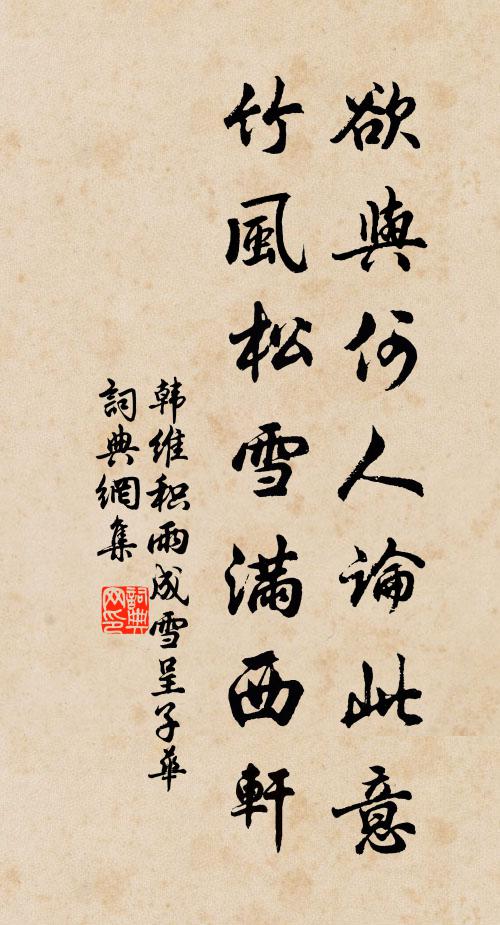 欲與何人論此意
竹風松雪滿西軒
韩維积雨成雪呈子華
詞典網集
詞典网印